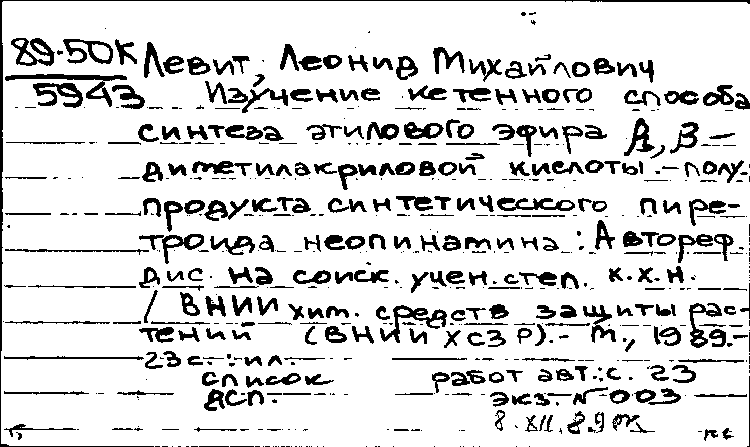 89-50К Левит, Леонид Михайлович
5943 Изучение кетенного способа
синтеза этилового эфира β, β -
диметилакриловой кислоты.-полу-
продукта синтетического пире-
троида неопинамина : Автореф.
дис. на соиск. учен. степ. к.х.н.
/ ВНИИ хим. средств защиты рас-
тений (ВНИИХСЗР).- М., 1989.-
23с. : ил.
список работ авт.: с. 23
дсп. экз. № 003
8.XII.89